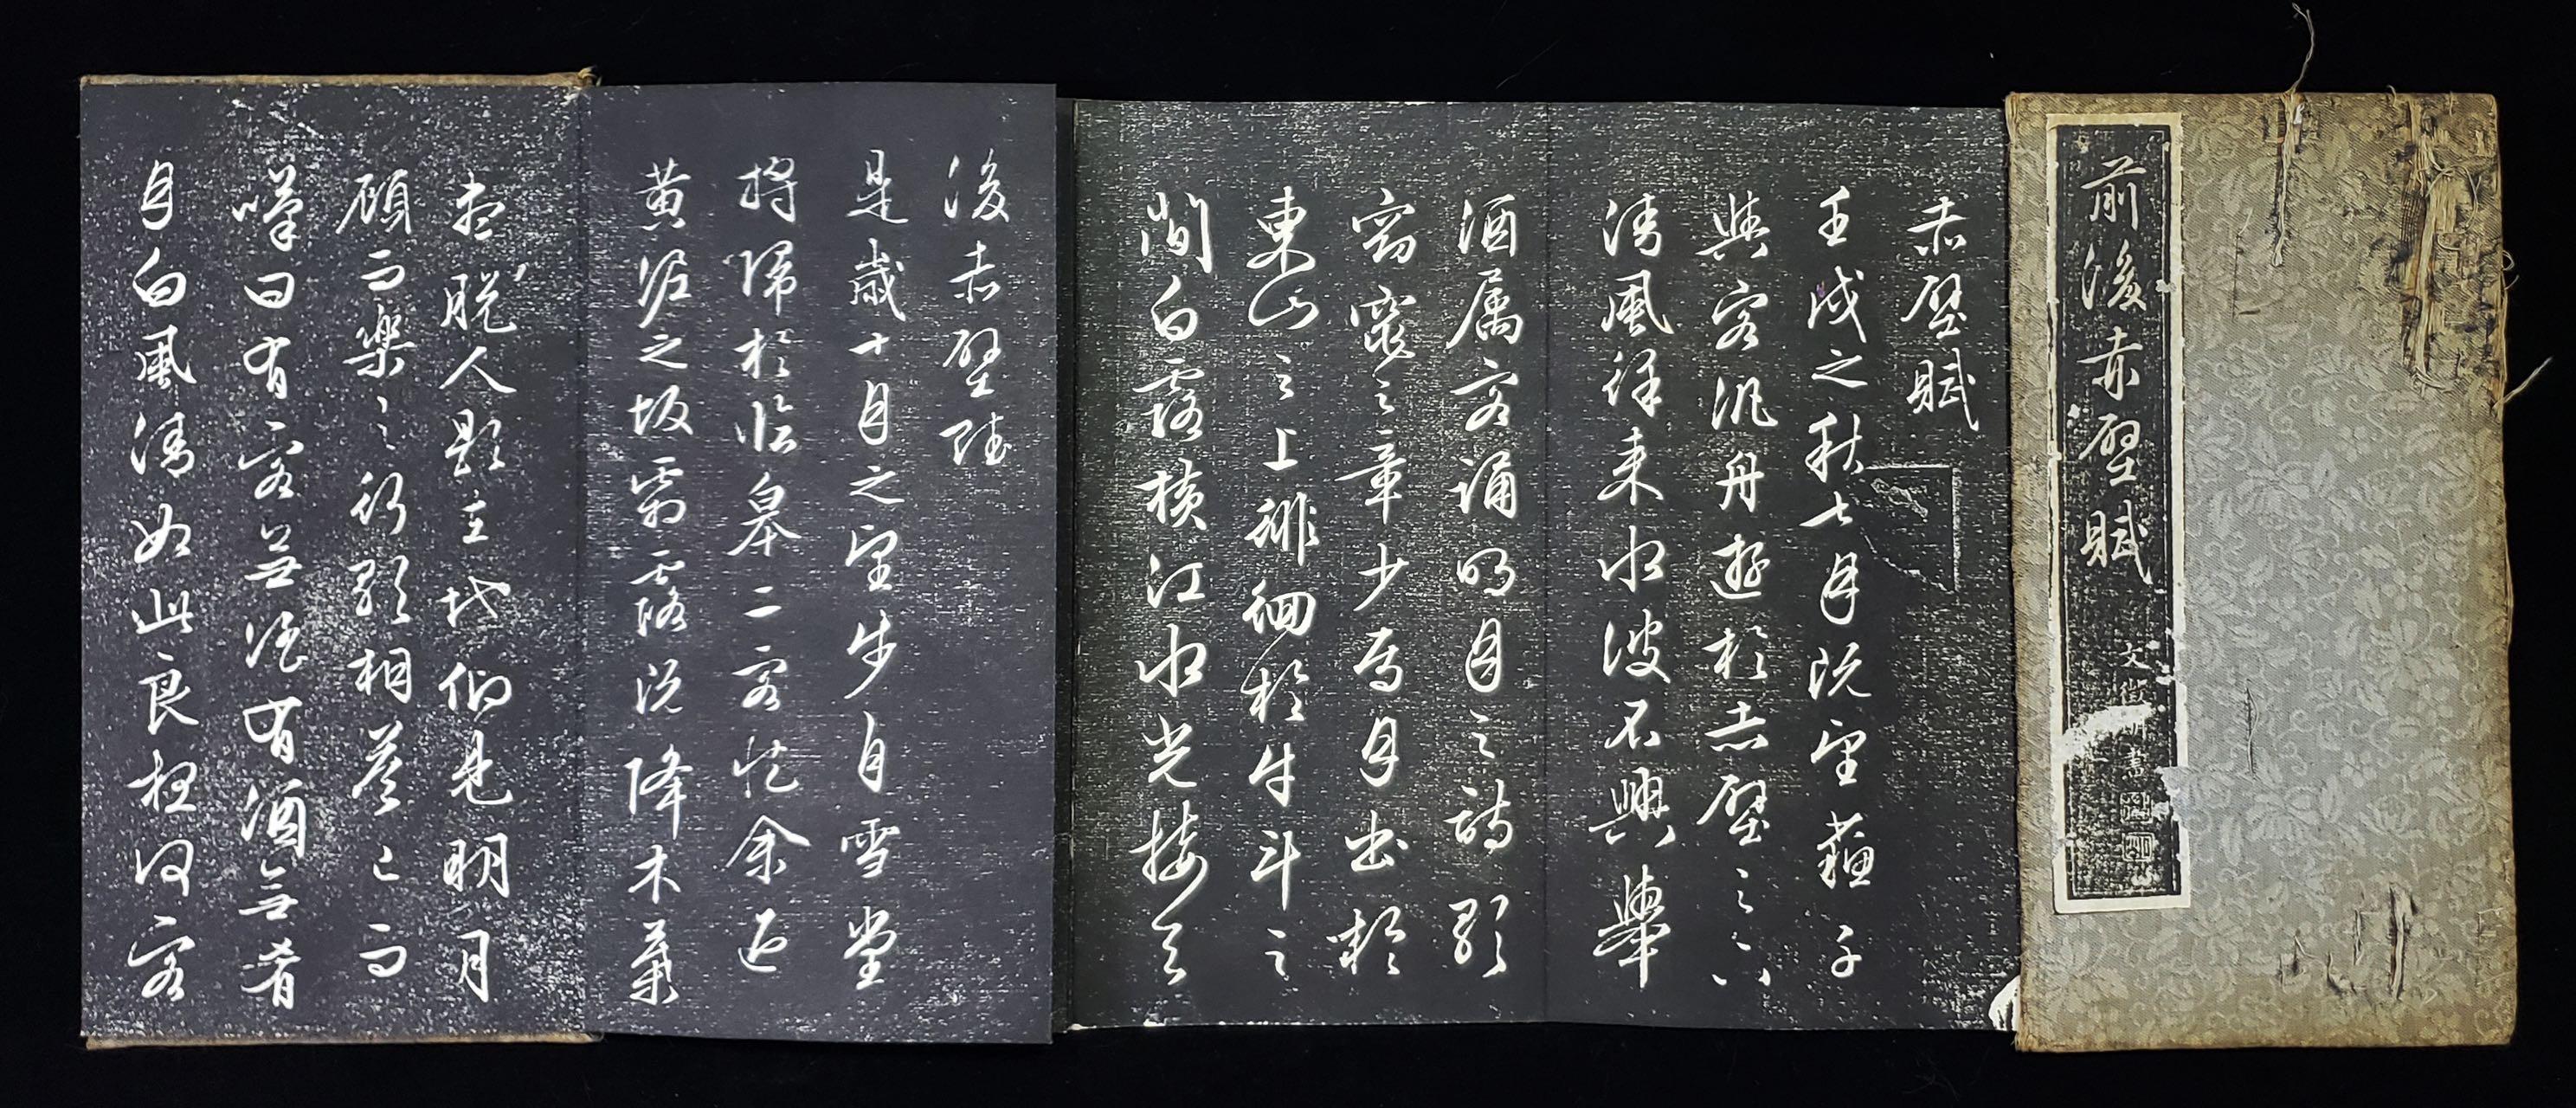 前後赤壁賦
文徵明書
赤壁賦
壬戌之秋七月既望蘇子
與客汎舟遊於赤壁之下
清風徐來水波不興舉
酒属客誦明月之詩歌
窈窕之章少焉月出於
東山之上徘徊於牛斗之
間白露橫江水光接天
後赤壁賦
是歲十月之望步自雪堂
將歸於臨皋二客從余過
黃泥之坂霜露既降木葉
盡脫人影在地仰見明月
顧而樂之行歌相答已而
嘆曰有客無酒有酒無肴
月白風清如此良夜何客